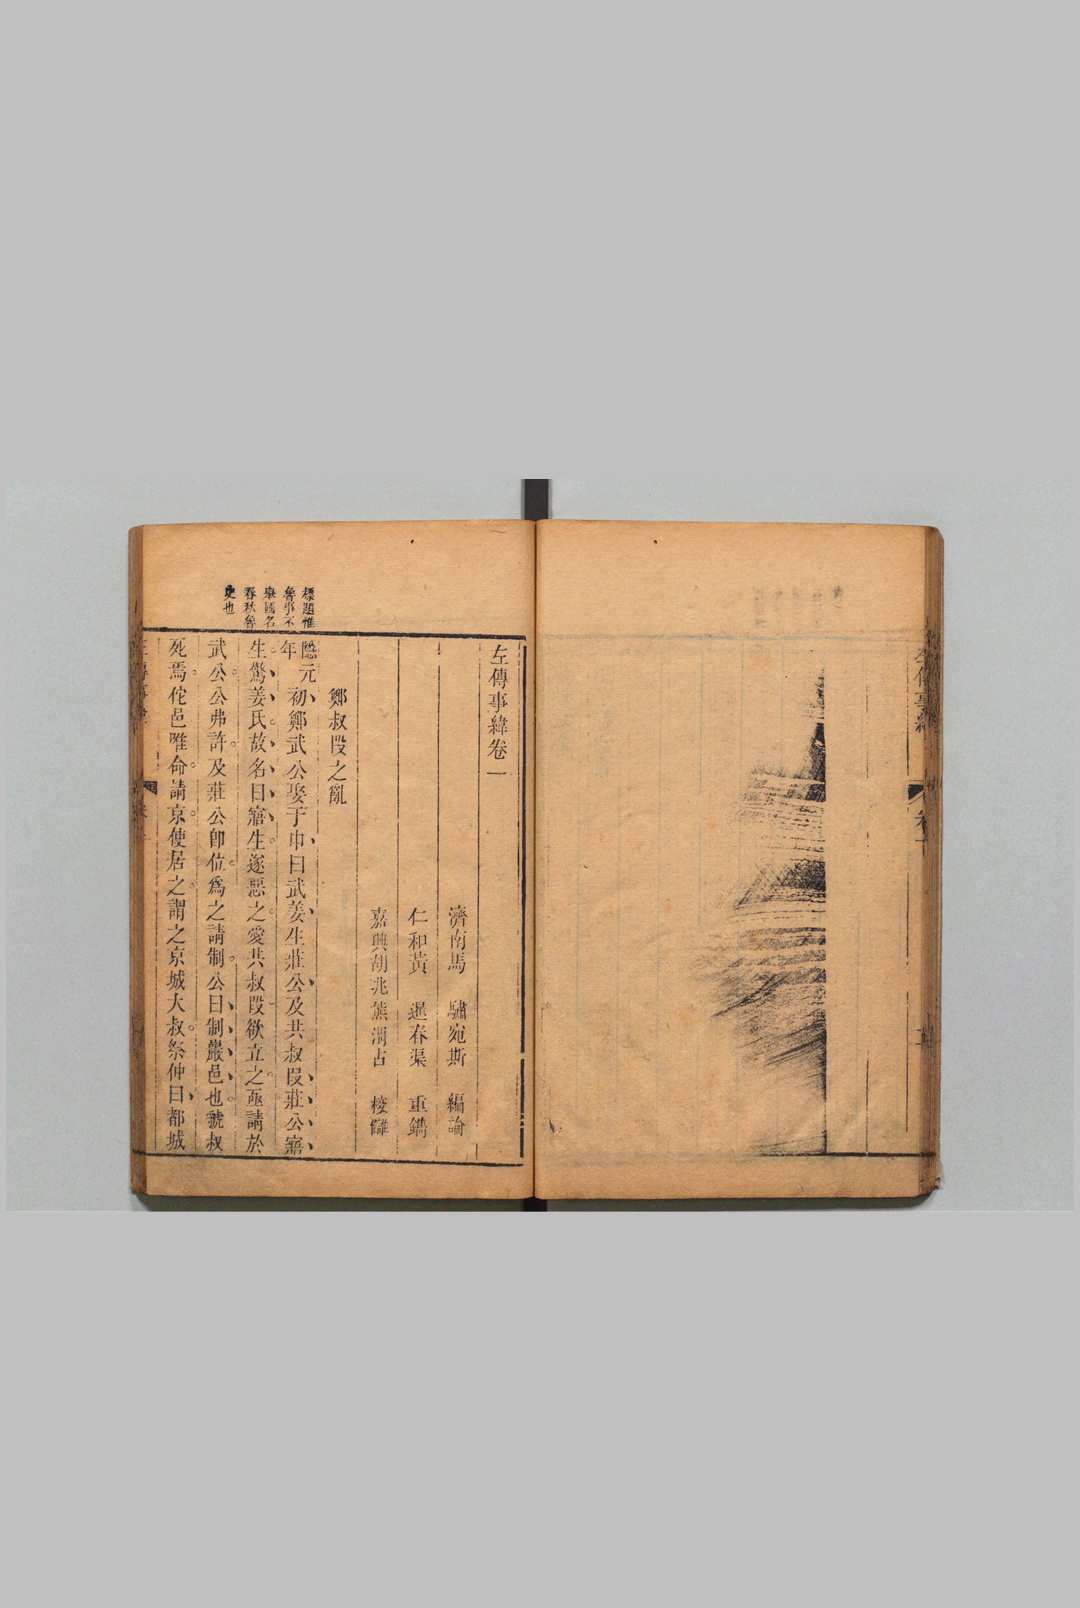 左傳事緯
卷一
左傳事緯卷一
濟南馬 驌宛斯 編論
仁和黃 暹春渠 重鐫
嘉興胡兆熊渭占 校讎
鄭叔段之亂
標題惟
魯事不
舉國名
春秋魯
史也
隱元年初鄭武公娶于申曰武姜生莊公及共叔段莊公寤
生驚姜氏故名曰寤生遂惡之愛共叔段欲立之亟請於
武公公弗許及莊公卽位爲之請制公曰制巖邑也虢叔
死焉佗邑唯命請京使居之謂之京城大叔祭仲曰都城